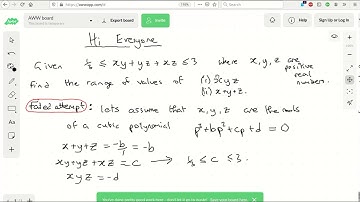 AWW board
Export board
Invite to board
Sign Up or Log In
Hi Everyone
Given 1/3 ≤ xy + yz + xz ≤ 3 where x,y,z are positive real numbers.
find the range of values of (i) xyz
(ii) x+y+z.
failed attempt: lets assume that x,y,z are the roots
of a cubic polynomial p³+bp²+cp+d = 0
x+y+z = -b/1 = -b
xy+yz+xz = c → 1/3 ≤ c ≤ 3.
xyz = -d